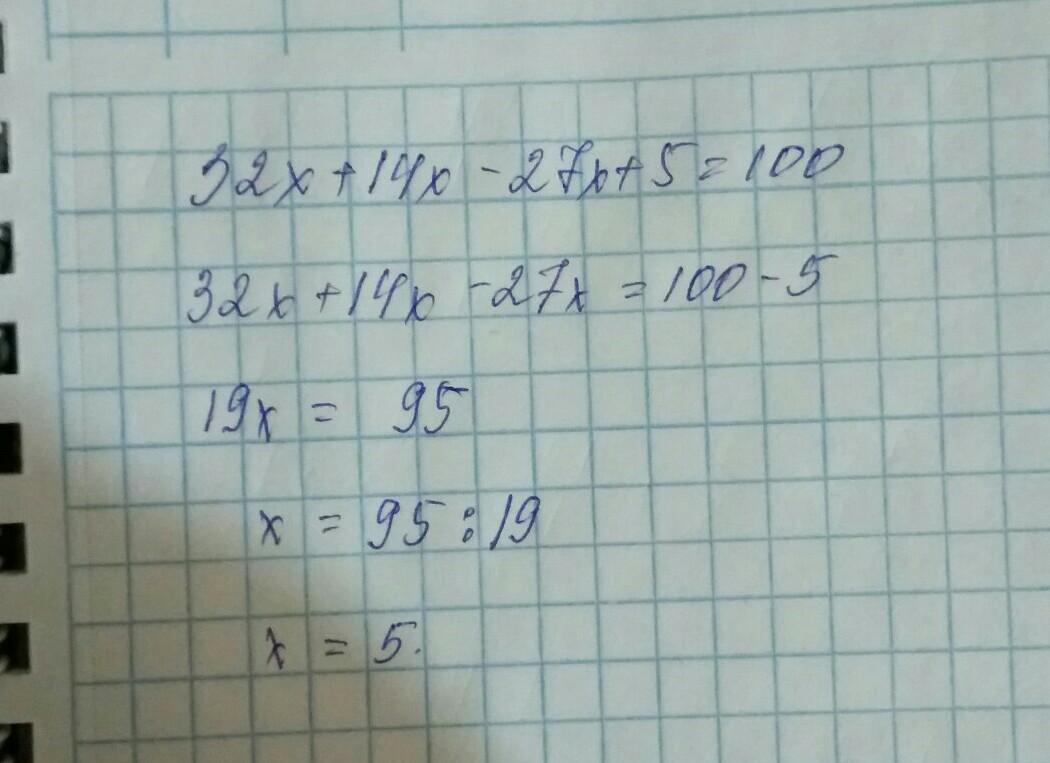 32x+14x-27x+5=100
32x+14x-27x=100-5
19x= 95
x=95:19
x=5.